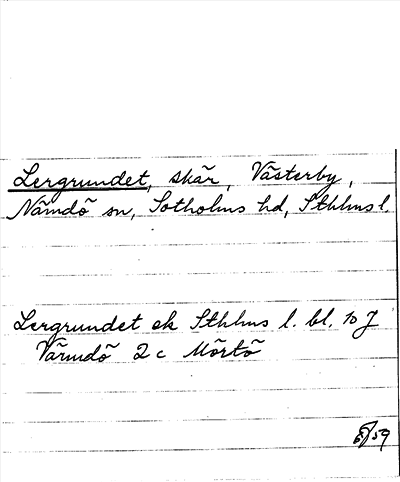 Lergrundet, skär, Västerby,
Nämdö sn, Sotholms hd, Sthlms l.
Lergrundet ek Sthlms l. bl. 10 J
Värmdö 2c Mörtö
59